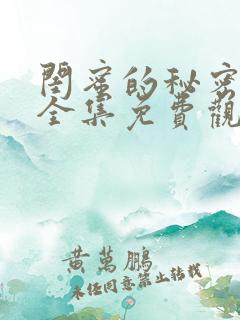 閨蜜的秘密
全集免費觀
黃萬鵬
未经同意禁止转载